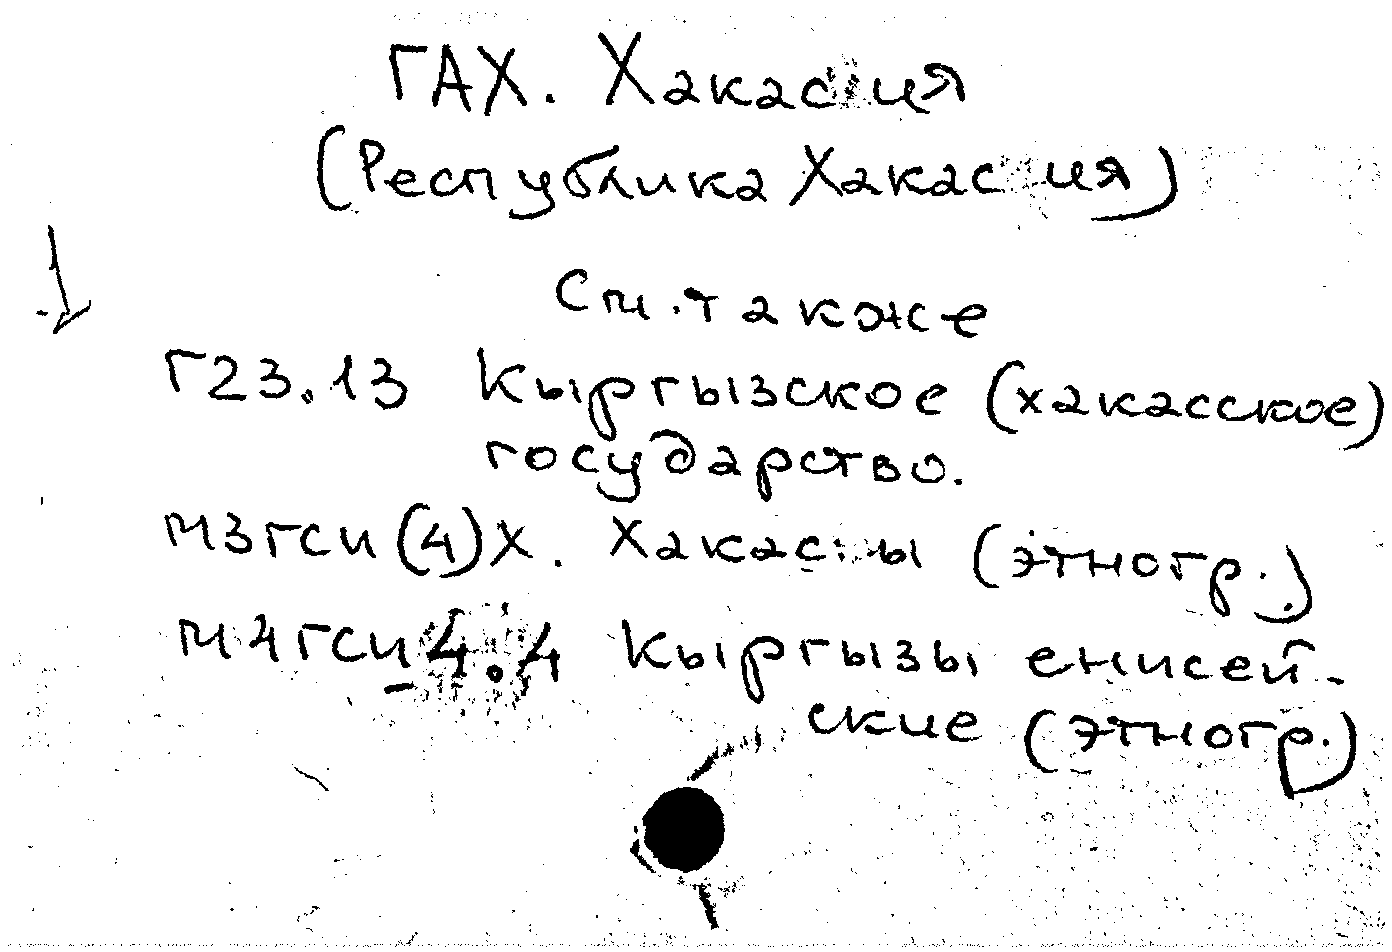 ГАХ. Хакасия
(Республика Хакасия)
См. также
Г23.13 Кыргызское (хакасское)
государство.
м3гси(4)Х. Хакасы (этногр.)
м4гси4.4 Кыргызы енисей-
ские (этногр.)